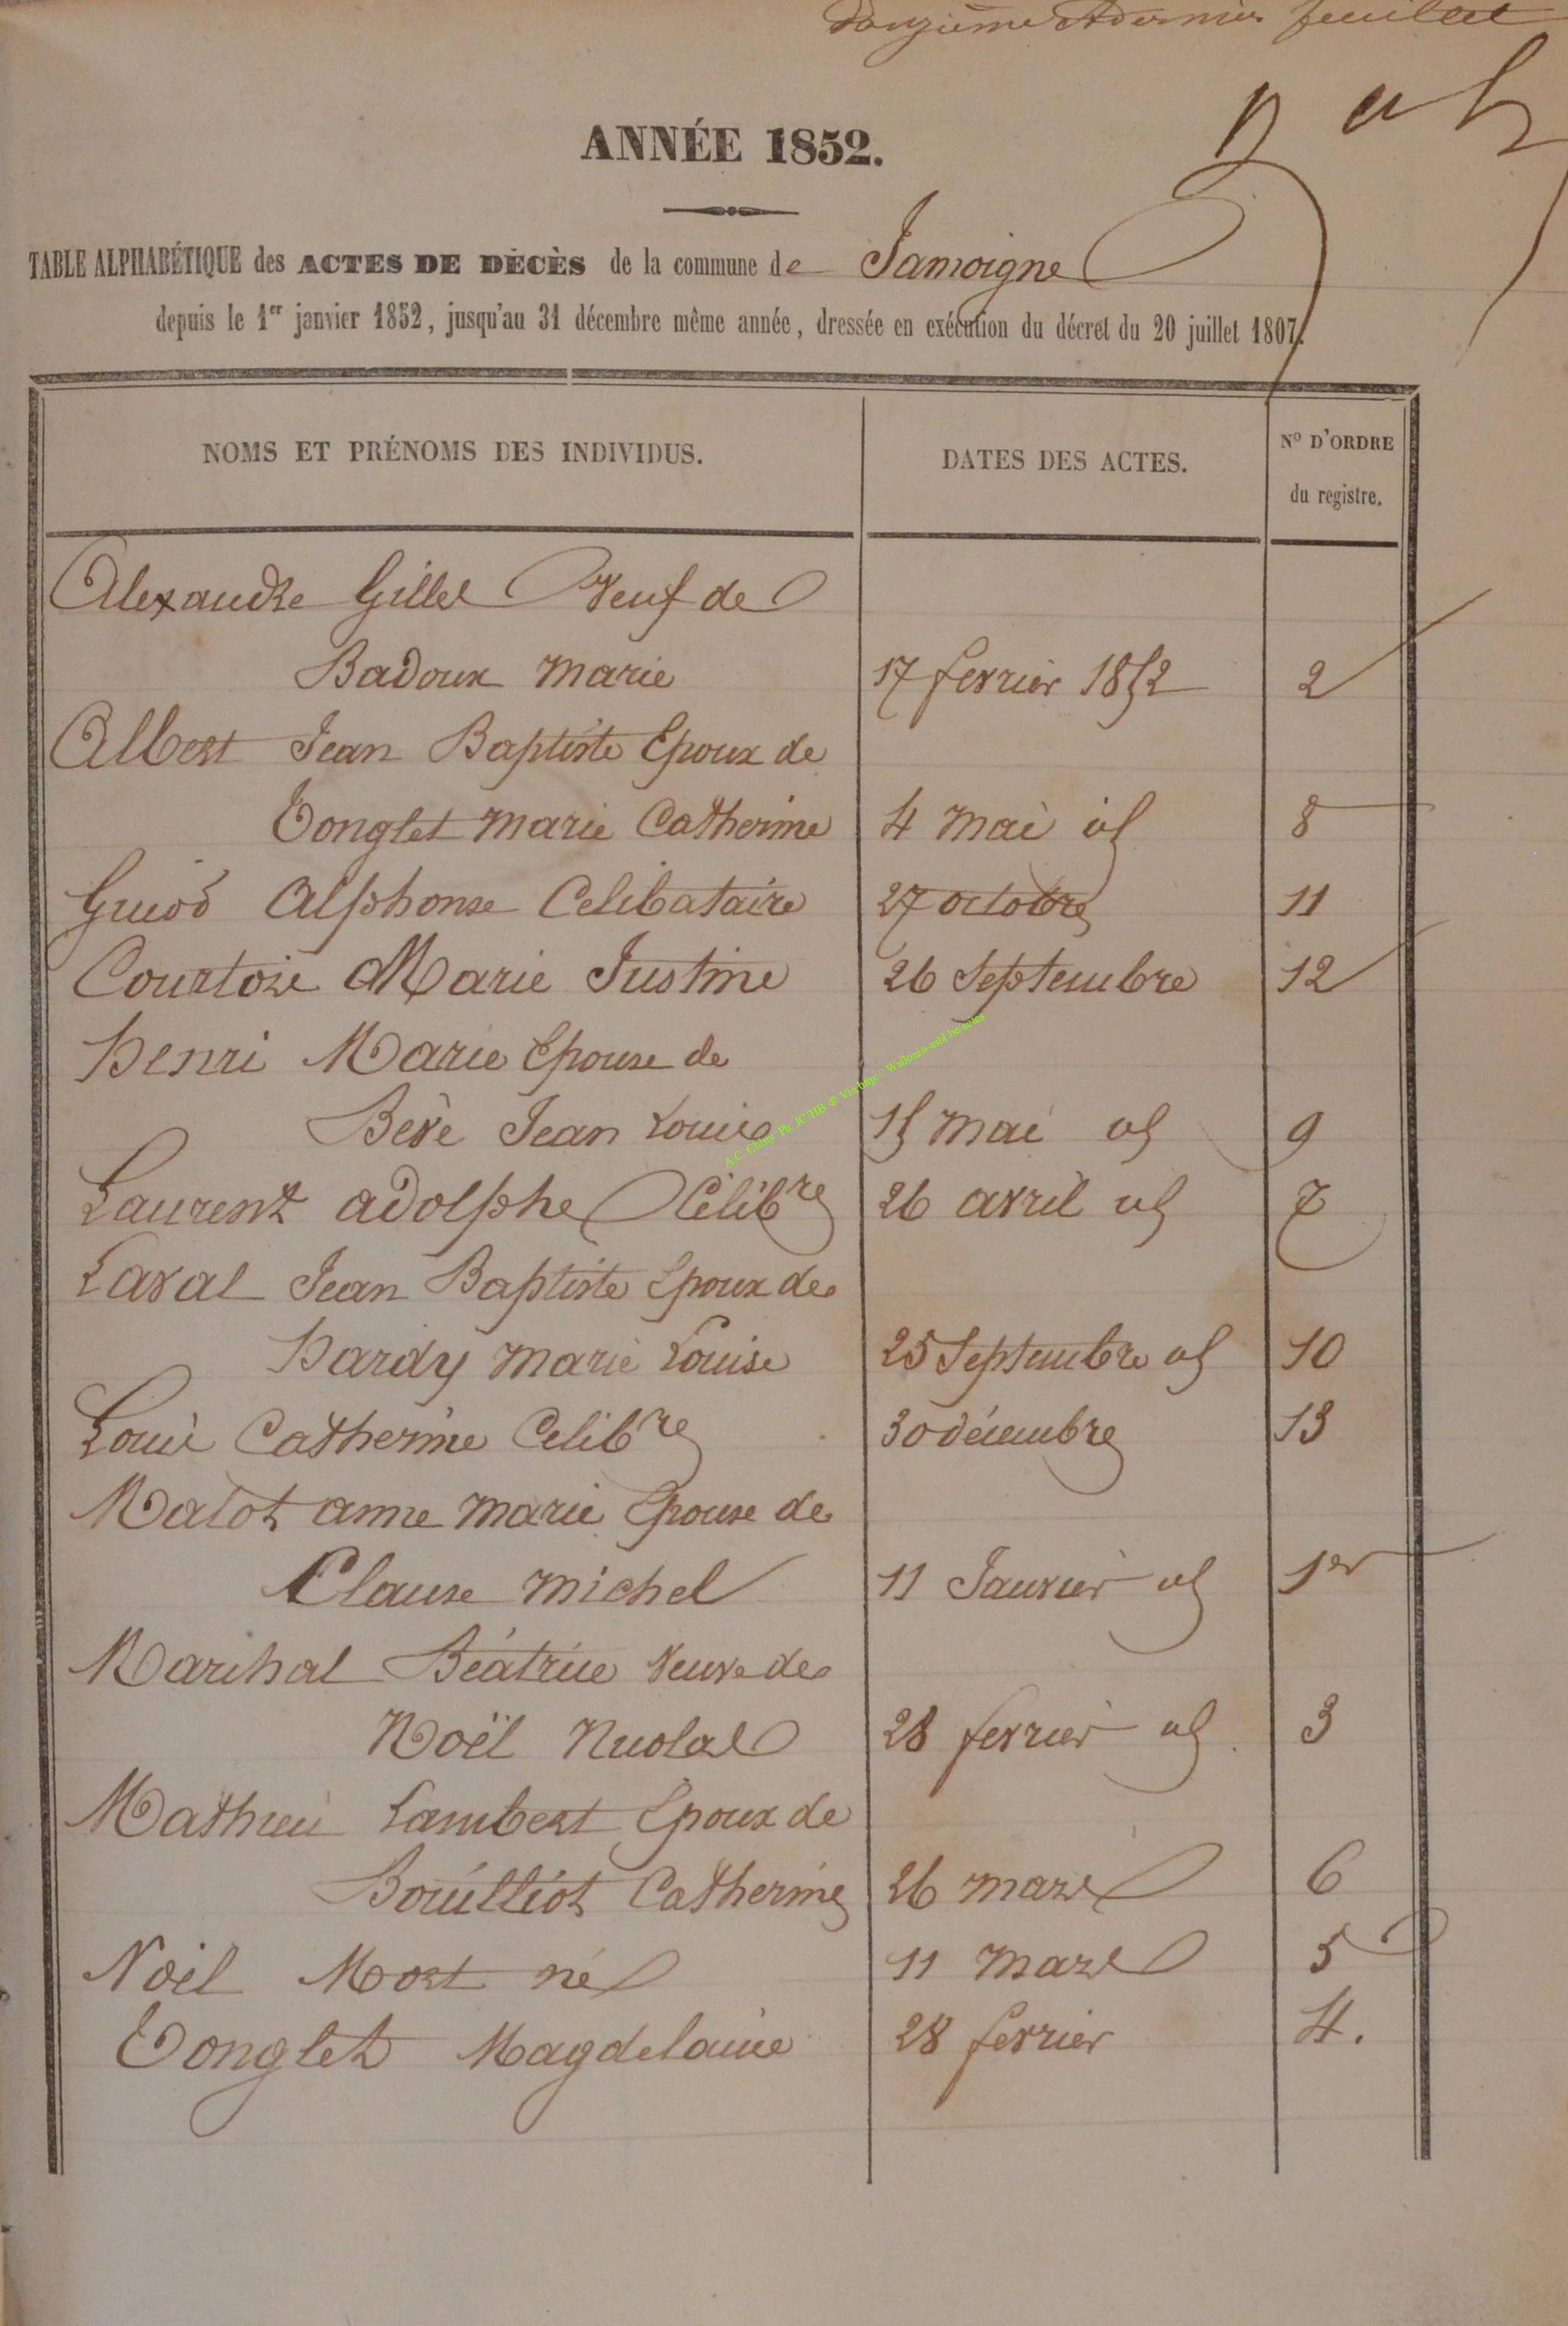 Douzième & dernier feuillet
ANNÉE 1852.
TABLE ALPHABÉTIQUE des ACTES DE DÉCÈS de la commune de Jamoigne
depuis le 1er janvier 1852, jusqu'au 31 décembre même année, dressée en exécution du décret du 20 juillet 1807.
NOMS ET PRÉNOMS DES INDIVIDUS. DATES DES ACTES. No D'ORDRE
du registre.
Alexandre Gilles Veuf de
Badoux Marie 17 fevrier 1852 2
Albert Jean Baptiste Epoux de
Tonglet Marie Catherine 4 Mai id 8
Guiot Alphonse Celibataire 27 octobre 11
Courtois Marie Justine 26 Septembre 12
Henri Marie Epouse de
Bévé Jean Louis 15 Mai id 9
Laurent Adolphe Célibre 26 avril id 7
Laval Jean Baptiste Epoux de
Hardy Marie Louise 25 Septembre id 10
Louis Catherine Celibre 30 décembre 13
Malot anne Marie Epouse de
Clause Michel 11 Janvier id 1er
Marchal Béatrice Veuve de
Noël Nicolas 28 fevrier id 3
Mathieu Lambert Epoux de
Bouilliot Catherine 26 Mars 6
Noël Mort né 11 Mars 5
Tonglet Magdelaine 28 fevrier 4.